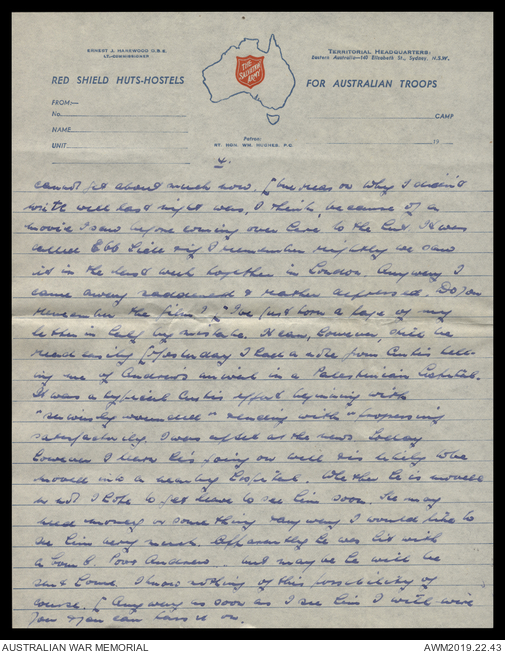 ERNEST J. HAREWOOD O.B.E.
LT.-COMMISSIONER
TERRITORIAL HEADQUARTERS:
Eastern Australia—140 Elizabeth St., Sydney, N.S.W.
THE SALVATION ARMY
RED SHIELD HUTS-HOSTELS
FOR AUSTRALIAN TROOPS
FROM:—
No.
CAMP
NAME
Patron:
RT. HON. WM. HUGHES, P.C.
19
UNIT
4.
cannot get about much now. [One reason why I didn't
write well last night was, I think, because of a
movie I saw before coming over here to the hut. It was
called Ebb Tide & if I remember rightly we saw
it in the last week together in London. Anyway I
came away saddened & rather depressed. Do you
remember the film? [I've just torn a page of my
letter in half by mistake. It can, however, still be
read easily [Yesterday I had a note from Curtis tell-
ing me of Andrew's arrival in a Palestinian hospital.
It was a typical Curtis effort beginning with
"seriously wounded" & ending with "progressing
satisfactorily. I was upset at the news. Today
however I hear he's going on well & is likely to be
moved into a nearby hospital. Whether he is moved
or not I hope to get leave to see him soon. He may
need money or something & anyway I would like to
see him very much. Apparently he was hit with
a bomb. Poor Andrew. and maybe he will be
sent home. I know nothing of this possibility of
course. [Anyway as soon as I see him I will wire
you & you can pass it on.
AUSTRALIAN WAR MEMORIAL
AWM2019.22.43